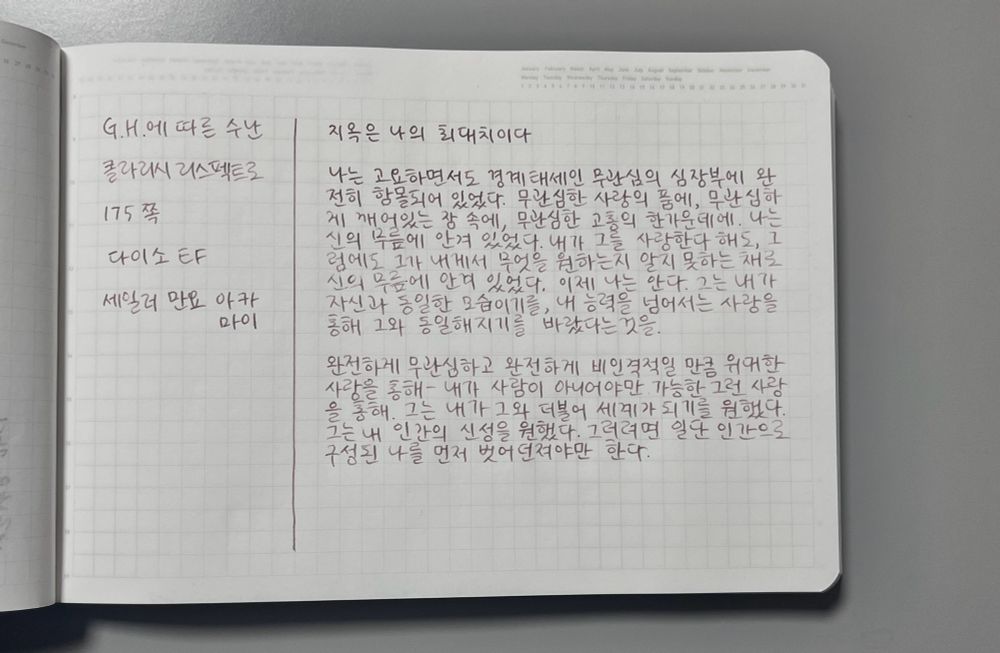 G.H.에 따른 수난
클라리시 리스펙트로
175 쪽
다이소 EF
세일러 만요 아카
마이
January February March April May June July August September October November December
Monday Tuesday Wednesday Thursday Friday Saturday Sunday
1 2 3 4 5 6 7 8 9 10 11 12 13 14 15 16 17 18 19 20 21 22 23 24 25 26 27 28 29 30 31
지옥은 나의 최대치이다
나는 고요하면서도 경계태세인 무관심의 심장부에 완
전히 함몰되어 있었다. 무관심한 사랑의 품에, 무관심하
게 깨어있는 잠 속에, 무관심한 고통의 한가운데에. 나는
신의 무릎에 안겨 있었다. 내가 그를 사랑한다 해도, 그
럼에도 그가 내게서 무엇을 원하는지 알지 못하는 채로
신의 무릎에 안겨 있었다. 이제 나는 안다. 그는 내가
자신과 동일한 모습이기를, 내 능력을 넘어서는 사랑을
통해 그와 동일해지기를 바랐다는것을.
완전하게 무관심하고 완전하게 비인격적일 만큼 위대한
사랑을 통해- 내가 사람이 아니어야만 가능한 그런 사랑
을 통해. 그는 내가 그와 더불어 세계가 되기를 원했다.
그는 내 인간의 신성을 원했다. 그러려면 일단 인간으로
구성된 나를 먼저 벗어던져야만 한다.